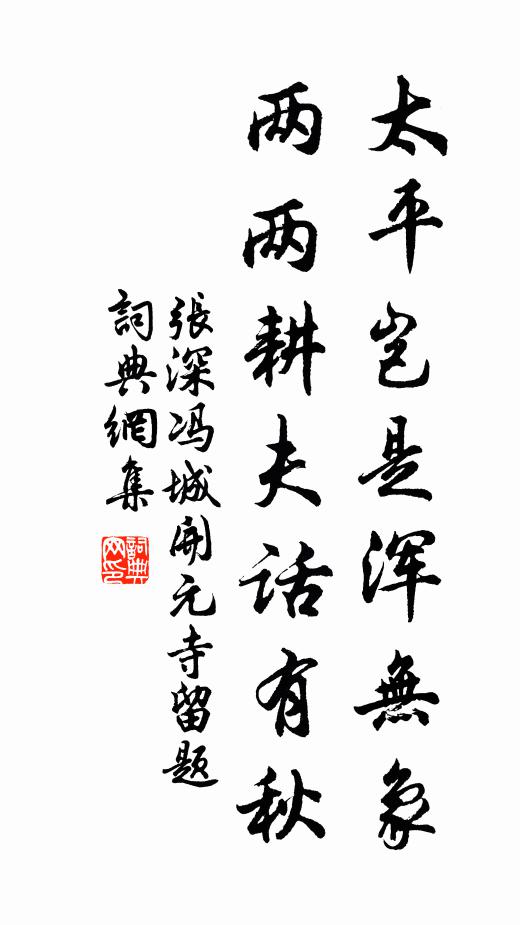 太平岂是浑無象
两两耕夫话有秋
張深冯城開元寺留题
詞典網集
詞典网印